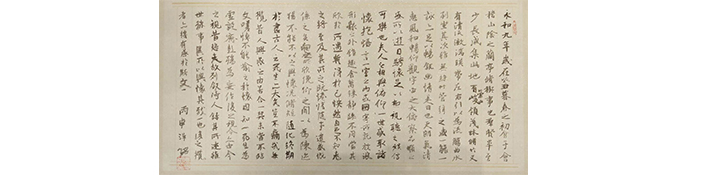 永和九年歲在癸丑暮春之初會于會
稽山陰之蘭亭脩禊事也群賢畢至
少長咸集此地有崇山峻領茂林脩竹又
有清流激湍映帶左右引以為流觴曲水
列坐其次雖無絲竹管弦之盛一觴一
詠亦足以暢敘幽情是日也天朗氣清
惠風和暢仰觀宇宙之大俯察品類之
盛所以遊目騁懷足以極視聽之娛信
可樂也夫人之相與俯仰一世或取諸
懷抱悟言一室之內或因寄所託放浪
形骸之外雖趣舍萬殊靜躁不同當其
欣於所遇暫得於己快然自足不知老
之將至及其所之既惓情隨事遷感慨
係之矣向之所欣俛仰之間以為陳迹
猶不能不以之興懷況脩短隨化終期
於盡古人云死生亦大矣豈不痛哉每
攬昔人興感之由若合一契未嘗不臨
文嗟悼不能喻之於懷固知一死生為
虛誕齊彭殤為妄作後之視今亦由今
之視昔悲夫故列敘時人錄其所述雖
世殊事異所以興懷其致一也後之攬
者亦將有感於斯文 丙申